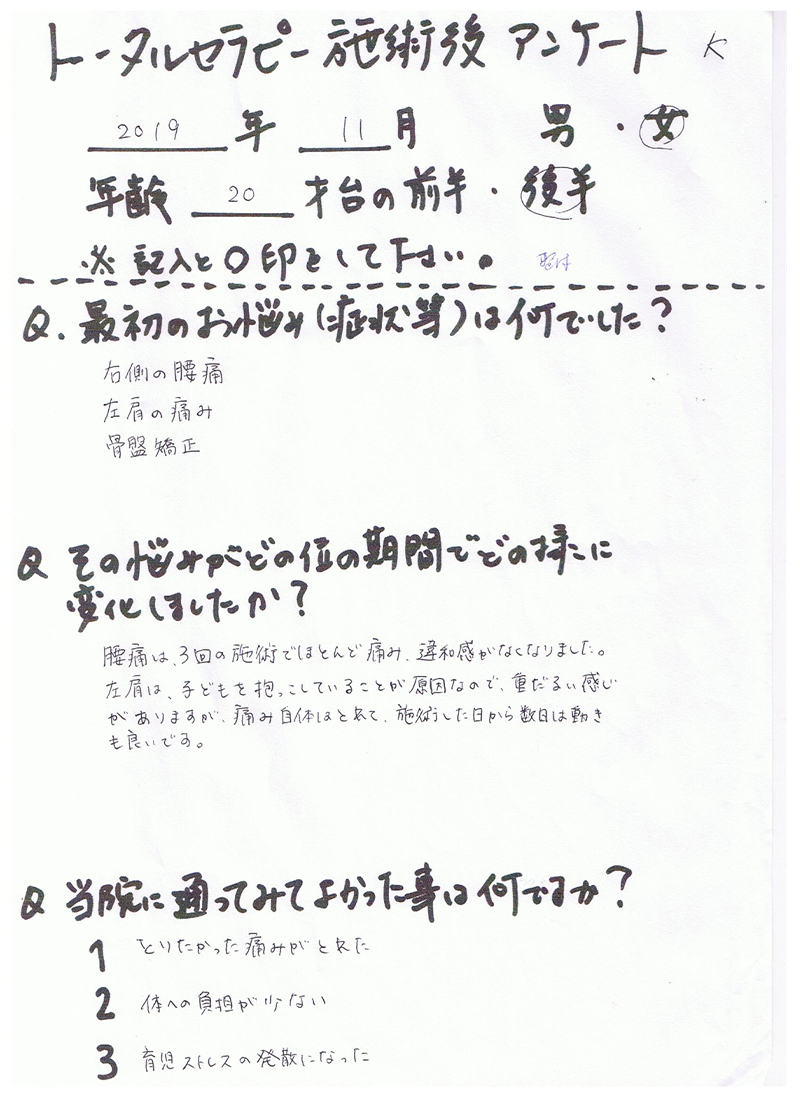 トータルセラピー施術後 アンケート K
2019 年 11 月 男 ・ 女
年齢 20 才台の前半・後半
※ 記入と○印をして下さい。
Q. 最初のお悩み(症状等)は何でした?
右側の腰痛
左肩の痛み
骨盤矯正
Q その悩みがどの位の期間でどの様に
変化しましたか?
腰痛は、3回の施術でほとんど痛み、違和感がなくなりました。
左肩は、子どもを抱っこしていることが原因なので、重だるい感じ
がありますが、痛み自体はとれて、施術した日から数日は動き
も良いです。
Q 当院に通ってみてよかった事は何ですか?
1 とりたかった痛みがとれた
2 体への負担が少ない
3 育児ストレスの発散になった